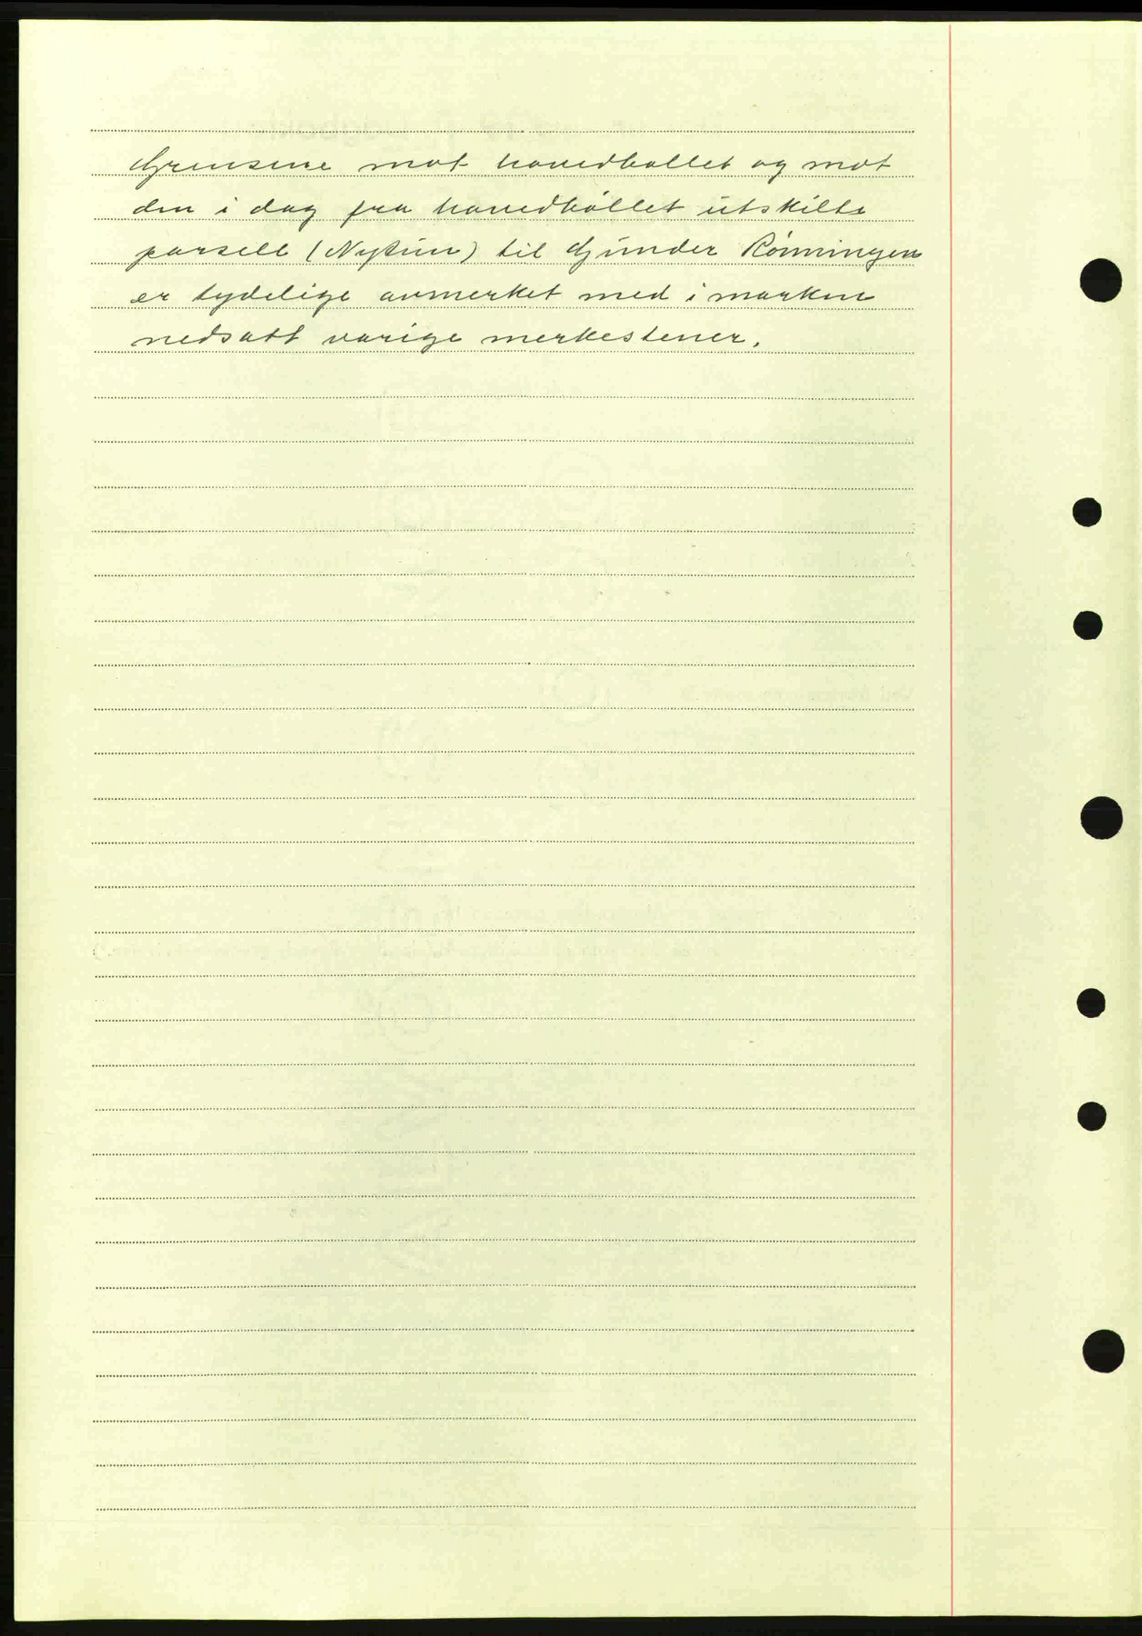 Grensene mot hovedbøllet og mot
den i dag fra hovedbøllet utskilte
parsell (Nytun) til Gunder Rønningen
er tydelige avmerket med i marken
nedsatt varige merkestener.